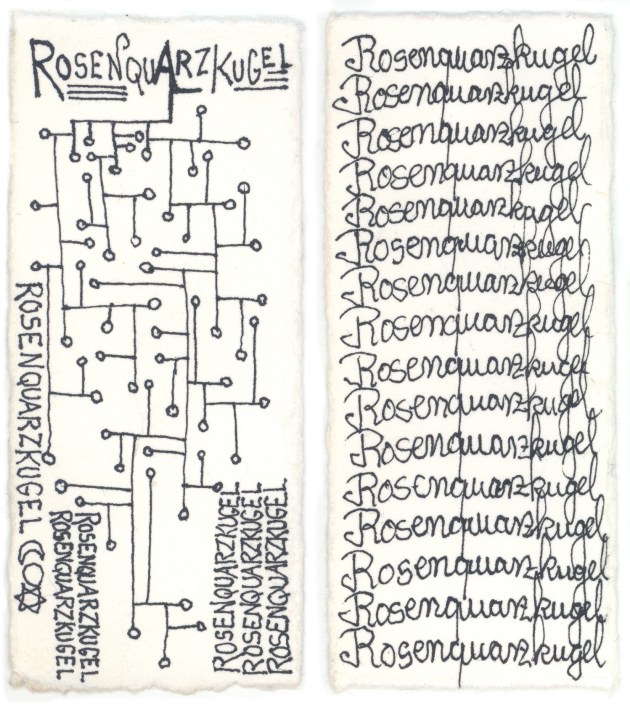 ROSENQUARZKUGEL
ROSENQUARZKUGEL
ROSENQUARZKUGEL
ROSENQUARZKUGEL
ROSENQUARZKUGEL
ROSENQUARZKUGEL
ROSENQUARZKUGEL
Rosenquarzkugel
Rosenquarzkugel
Rosenquarzkugel
Rosenquarzkugel
Rosenquarzkugel
Rosenquarzkugel
Rosenquarzkugel
Rosenquarzkugel
Rosenquarzkugel
Rosenquarzkugel
Rosenquarzkugel
Rosenquarzkugel
Rosenquarzkugel
Rosenquarzkugel
Rosenquarzkugel
Rosenquarzkugel